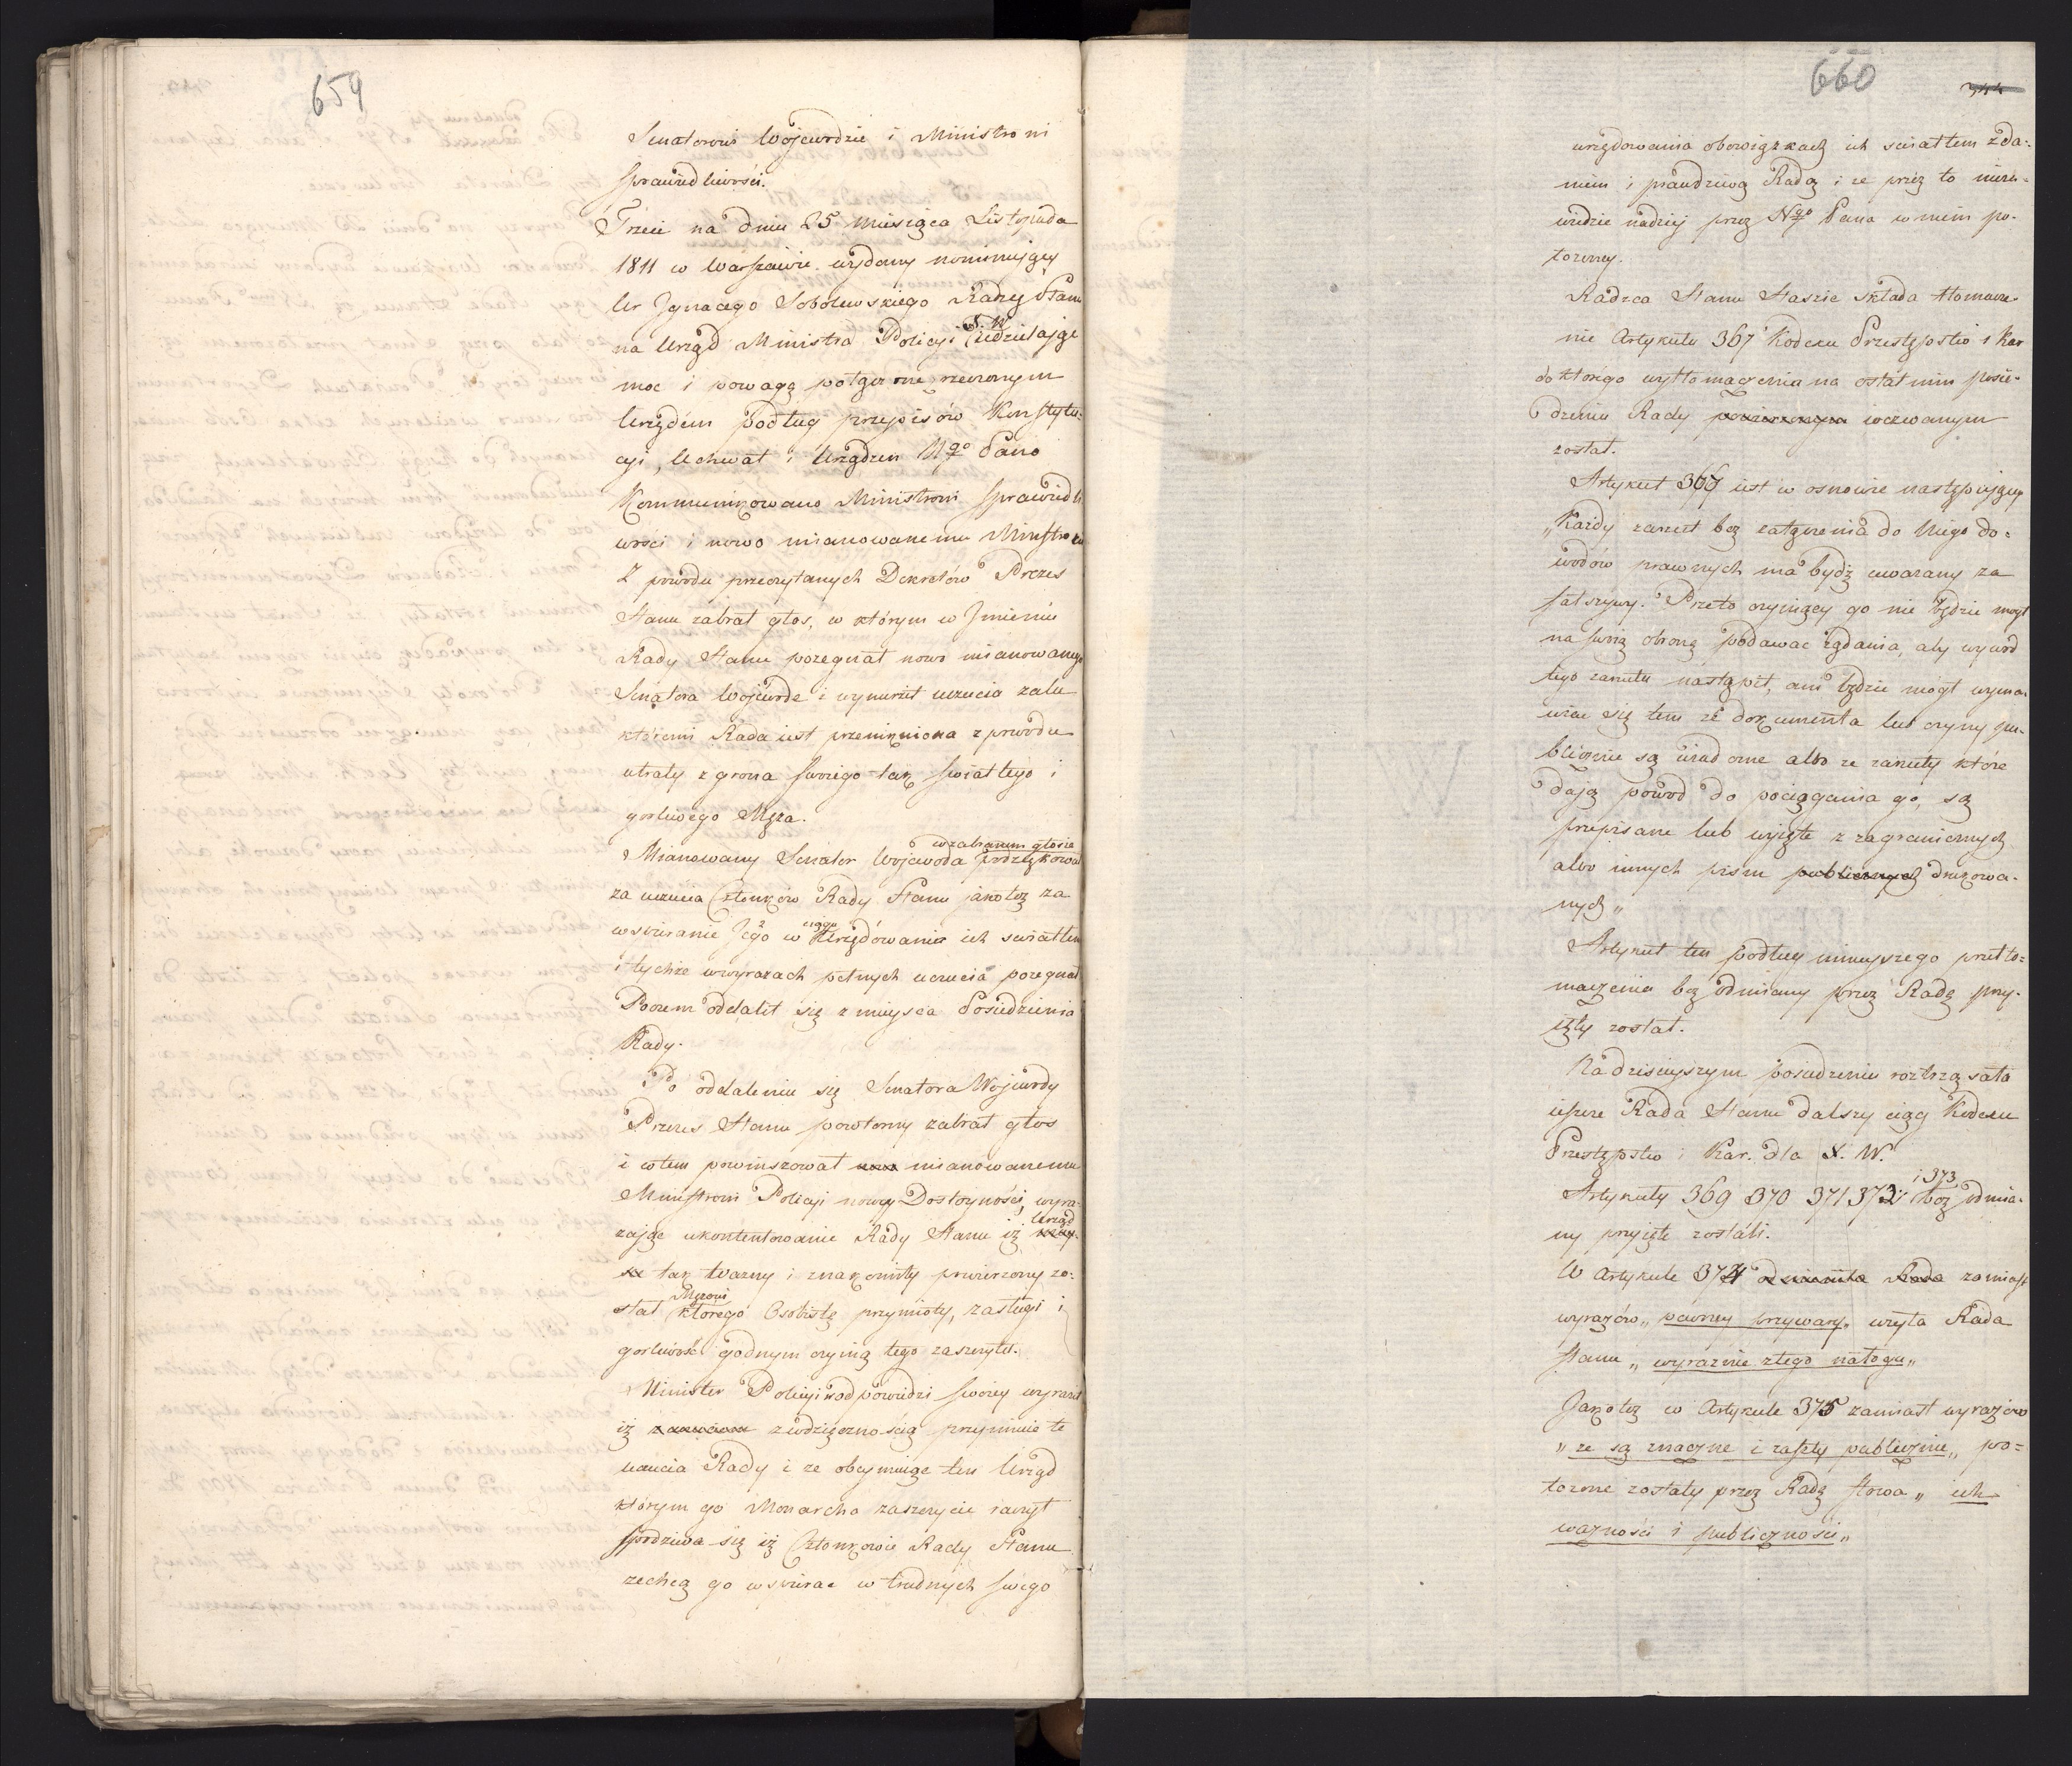 659
Senatorowi Wojewodzie i Ministrowi
Sprawiedliwości.
Trzeci na dniu 25 Miesiąca Listopada
1811 w Warszawie wydany nominujący
Ur Ignacego Sobolewskiego Radzcę Stanu
na Urząd Ministra Policyi X. W. udzielając
moc i powagę połączone rzeczonym
Urzędem podług przepisów Konstytu-
cyi, Uchwał i Urządzeń Ngo Pana
Kommunikowano Ministrowi Sprawiedli
wości i nowo mianowanemu Ministrowi
Z powodu przeczytanych Dekretów Prezes
Stanu zabrał głos, w którym w Imieniu
Rady Stanu pożegnał nowo mianowanego
Senatora Wojewodę i wynurzył uczucia żalu
któremi Rada iest przenikniona z powodu
utraty z grona swoiego tak światłego i
gorliwego Męża.
Mianowany Senator Wojewoda w zabranym głosie podziękował
za uczucia Członków Rady Stanu jakoteż za
wspieranie Jego w ciągu Urzędowania ich światłem
i tychże w wyrazach pełnych uczucia pożegnał
Poczem oddalił się z mieysca Posiedzenia
Rady.
Po oddaleniu się Senatora Wojewody
Prezes Stanu powtorny zabrał głos
i w tem powinszował nowo mianowanemu
Ministrowi Policyi nowey Dostoyności, wyra-
żając ukontentowanie Rady Stanu iż Urząd
tak ważny i znakomity powierzony zo-
stał Mężowi którego Osobiste przymioty, zasługi i
gorliwość godnym czynią tego zaszczytu.
Minister Policyi w odpowiedzi swoiey wyraził
iż z wdzięcznością przyimuie te
uczucia Rady i że obeymuiąc ten Urząd
którym go Monarcha zaszczycić raczył
spodziewa się iż Członkowie Rady Stanu
zechcą go wspierać w trudnych swego
660
344
urzędowania obowiązkach ich światłem zda-
niem i prawdziwą Radą i że przez to nieza-
wiedzie nadziej przez Ngo Pana w niem po-
łożoney.
Radzca Stanu Staszic składa tłomacze-
nie Artykułu 367 Kodexu Przestępstw i Kar
do którego wytłomaczenia na ostatnim posie-
dzeniu Rady wezwanym
został.
Artykuł 367 iest w osnowie następuiącey
„Każdy zarzut bez załączenia do Niego do-
wodów prawnych ma bydź uważany za
fałszywy. Przeto czyniący go nie będzie mogł
na swoią obronę podawać żądania, aby wywod
tego zarzutu nastąpił, ani będzie mógł wyma-
wiać się tem że dokumenta lub czyny pu-
blicznie są wiadome albo że zarzuty które
daią powod do pociągania go, są
przepisane lub wyięte z zagranicznych
albo innych pism publicznych drukowa-
nych„
Artykuł ten podług ninieyszego przetło-
maczenia bez odmiany przez Radę przy-
ięty został.
Na dzisieyszym posiedzeniu roztrząsała
ieszcze Rada Stanu dalszy ciąg Kodexu
Przestępstw i Kar dla X. W.
Artykuły 369 370 371 372 i 373 bez odmia-
ny przyięte zostali.
W Artykule 374 odmieniła Rada zamiast
wyrazów „pewney przywary„ wzięła Rada
Stanu „wyraznie złego nałogu„
Jakoteż w Artykule 375 zamiast wyrazów
„że są znaczne i zaszły publicznie„ po-
łożone zostały przez Radę słowa „ich
ważności i publiczności„